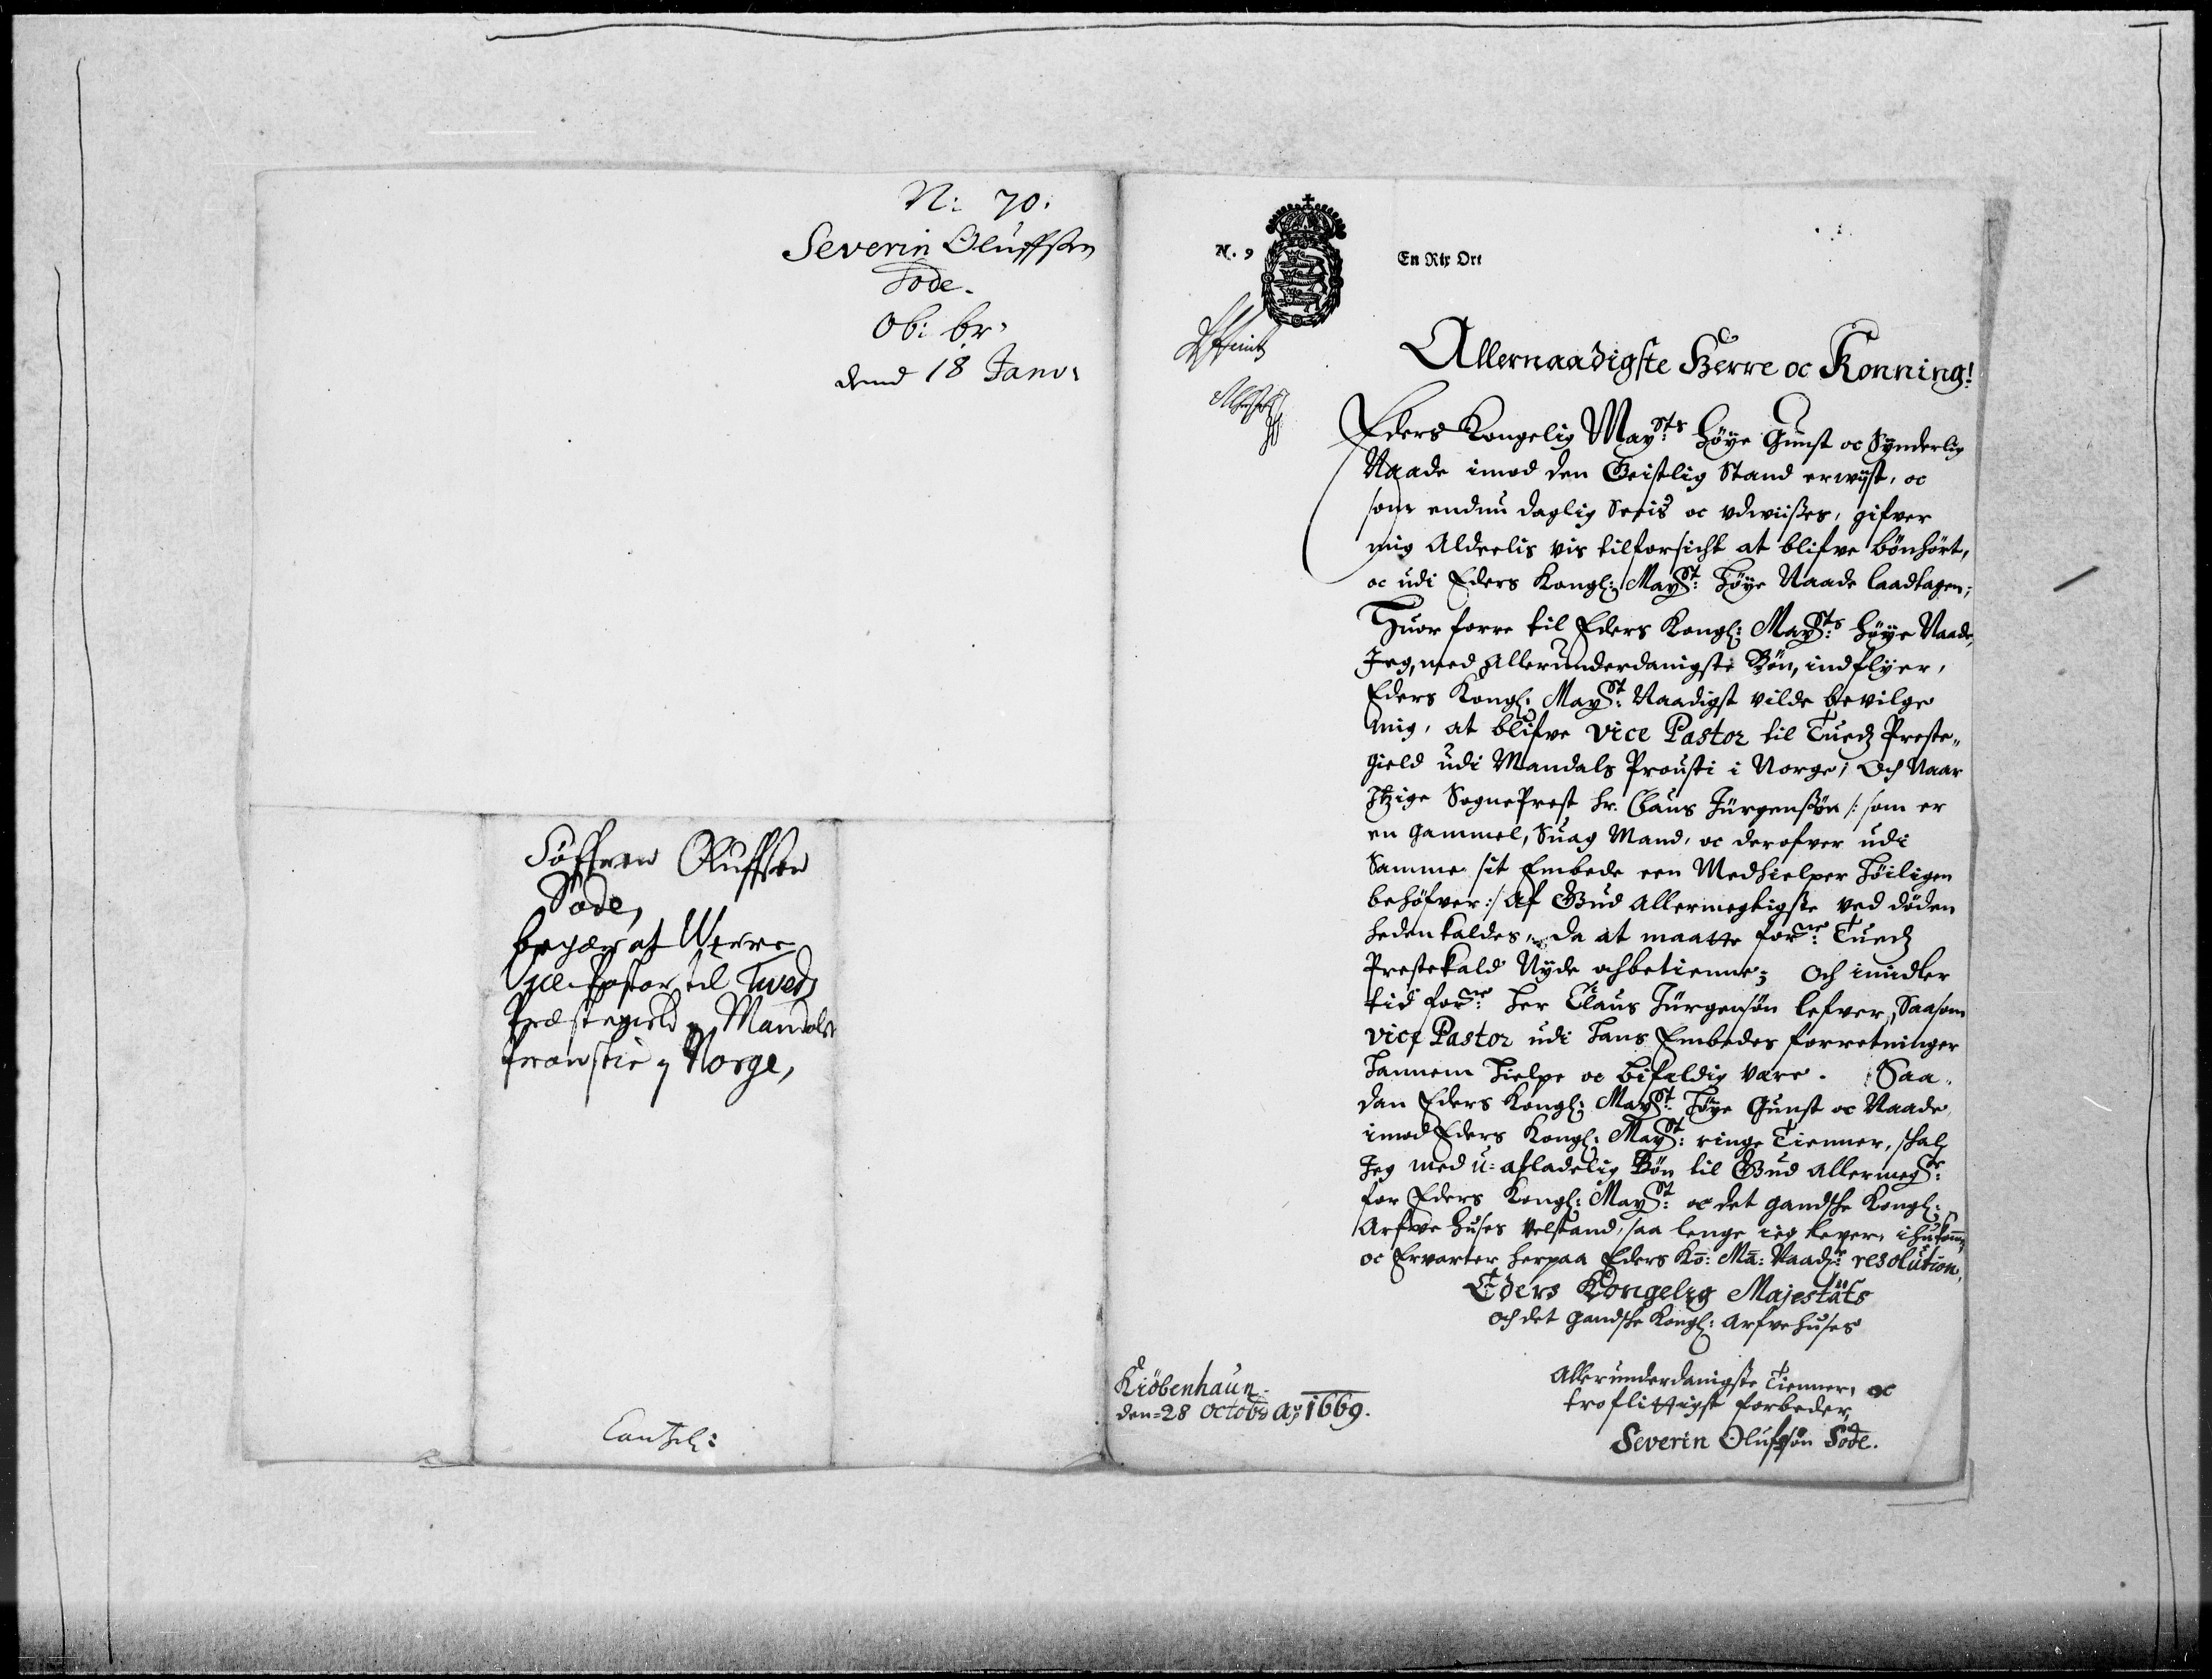 N: 70.
Severin Oluffsen
Sode.
Ob: br:
dend 18 Janv:
Søffren Oluffsen
Sode,
begær at Werre
Vice Pastor till Tweds
Præstegield y Mandals
Prowstie y Norge,
Cantzel:
N. 9
En Rix Ort
Allernaadigste Herre oc Konning!
Eders Kongelig Maysts høye Gunst oc Synderlig
Naade imod den Geistlig Stand erwÿst, oc
som endnu daglig Seeis oc udwiisses, gifver
mig Aldeelis vis tilforsicht at blifve bønhørt,
oc udi Eders Kongl: Mayst: Høÿe Naade laadtagen;
Huor forre til Eders Kongl: Maysts: høÿe Naade,
Jeg, med allerunderdanigste Bøn, indflÿer,
Eders Kongl: Mayst: Naadigst vilde bevilge
mig, at blifve Vice Pastor til Tuedz Preste„
gield udi Mandals Prousti i Norge; Och Naar
Itzige SognePrest Hr. Claus Jürgensøn /: som er
en gammel, Suag Mand, oc derofver udi
Samme sit Embede een Medhielper Høiligen
behøfver :/ Af Gud Allermegtigste ved døden
hedenkaldes, da at maatte forne: Tuedz
Prestekald Nÿde och betienne; Och imidler
tid forne: Her Claus Jürgensøn lefver, Saasom
vice Pastor udi Hans Embedes forretninger
Hannem Hielpe oc bifeldig være. Saa„
dan Eders Kongl: Mayst: Høÿe Gunst oc Naade
imod Eders Kongl: Mayst: ringe Tienner, skal
Jeg med u=afladelig Bøn til Gud allermegte:
for Eders Kongl: Mayst: oc det gandske Kongl:
Arfve Huses Velstand, saa lenge ieg lever, ihukomme
oc Ervarter herpaa Eders Ko: Ma: Naadge: resolution.
Eders Kongelig Majestäts
och det gandske Kongl: Arfvehuses
Allerunderdanigste Tienner, oc
troflittigst forbeder,
Severin Olufsøn Sode.
Kiöbenhaun
den=28 Octobr Ao 1669.